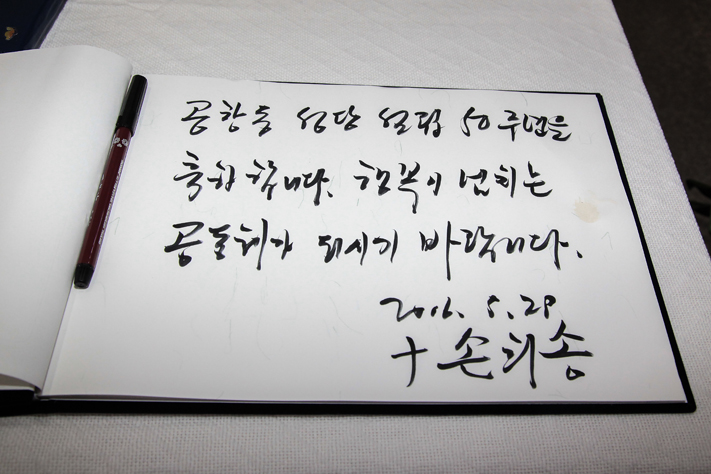 공항동 성당 설립 50주년을
축하합니다. 행복이 넘치는
공동체가 되시기 바랍니다.
2016. 5. 29
+ 손희송